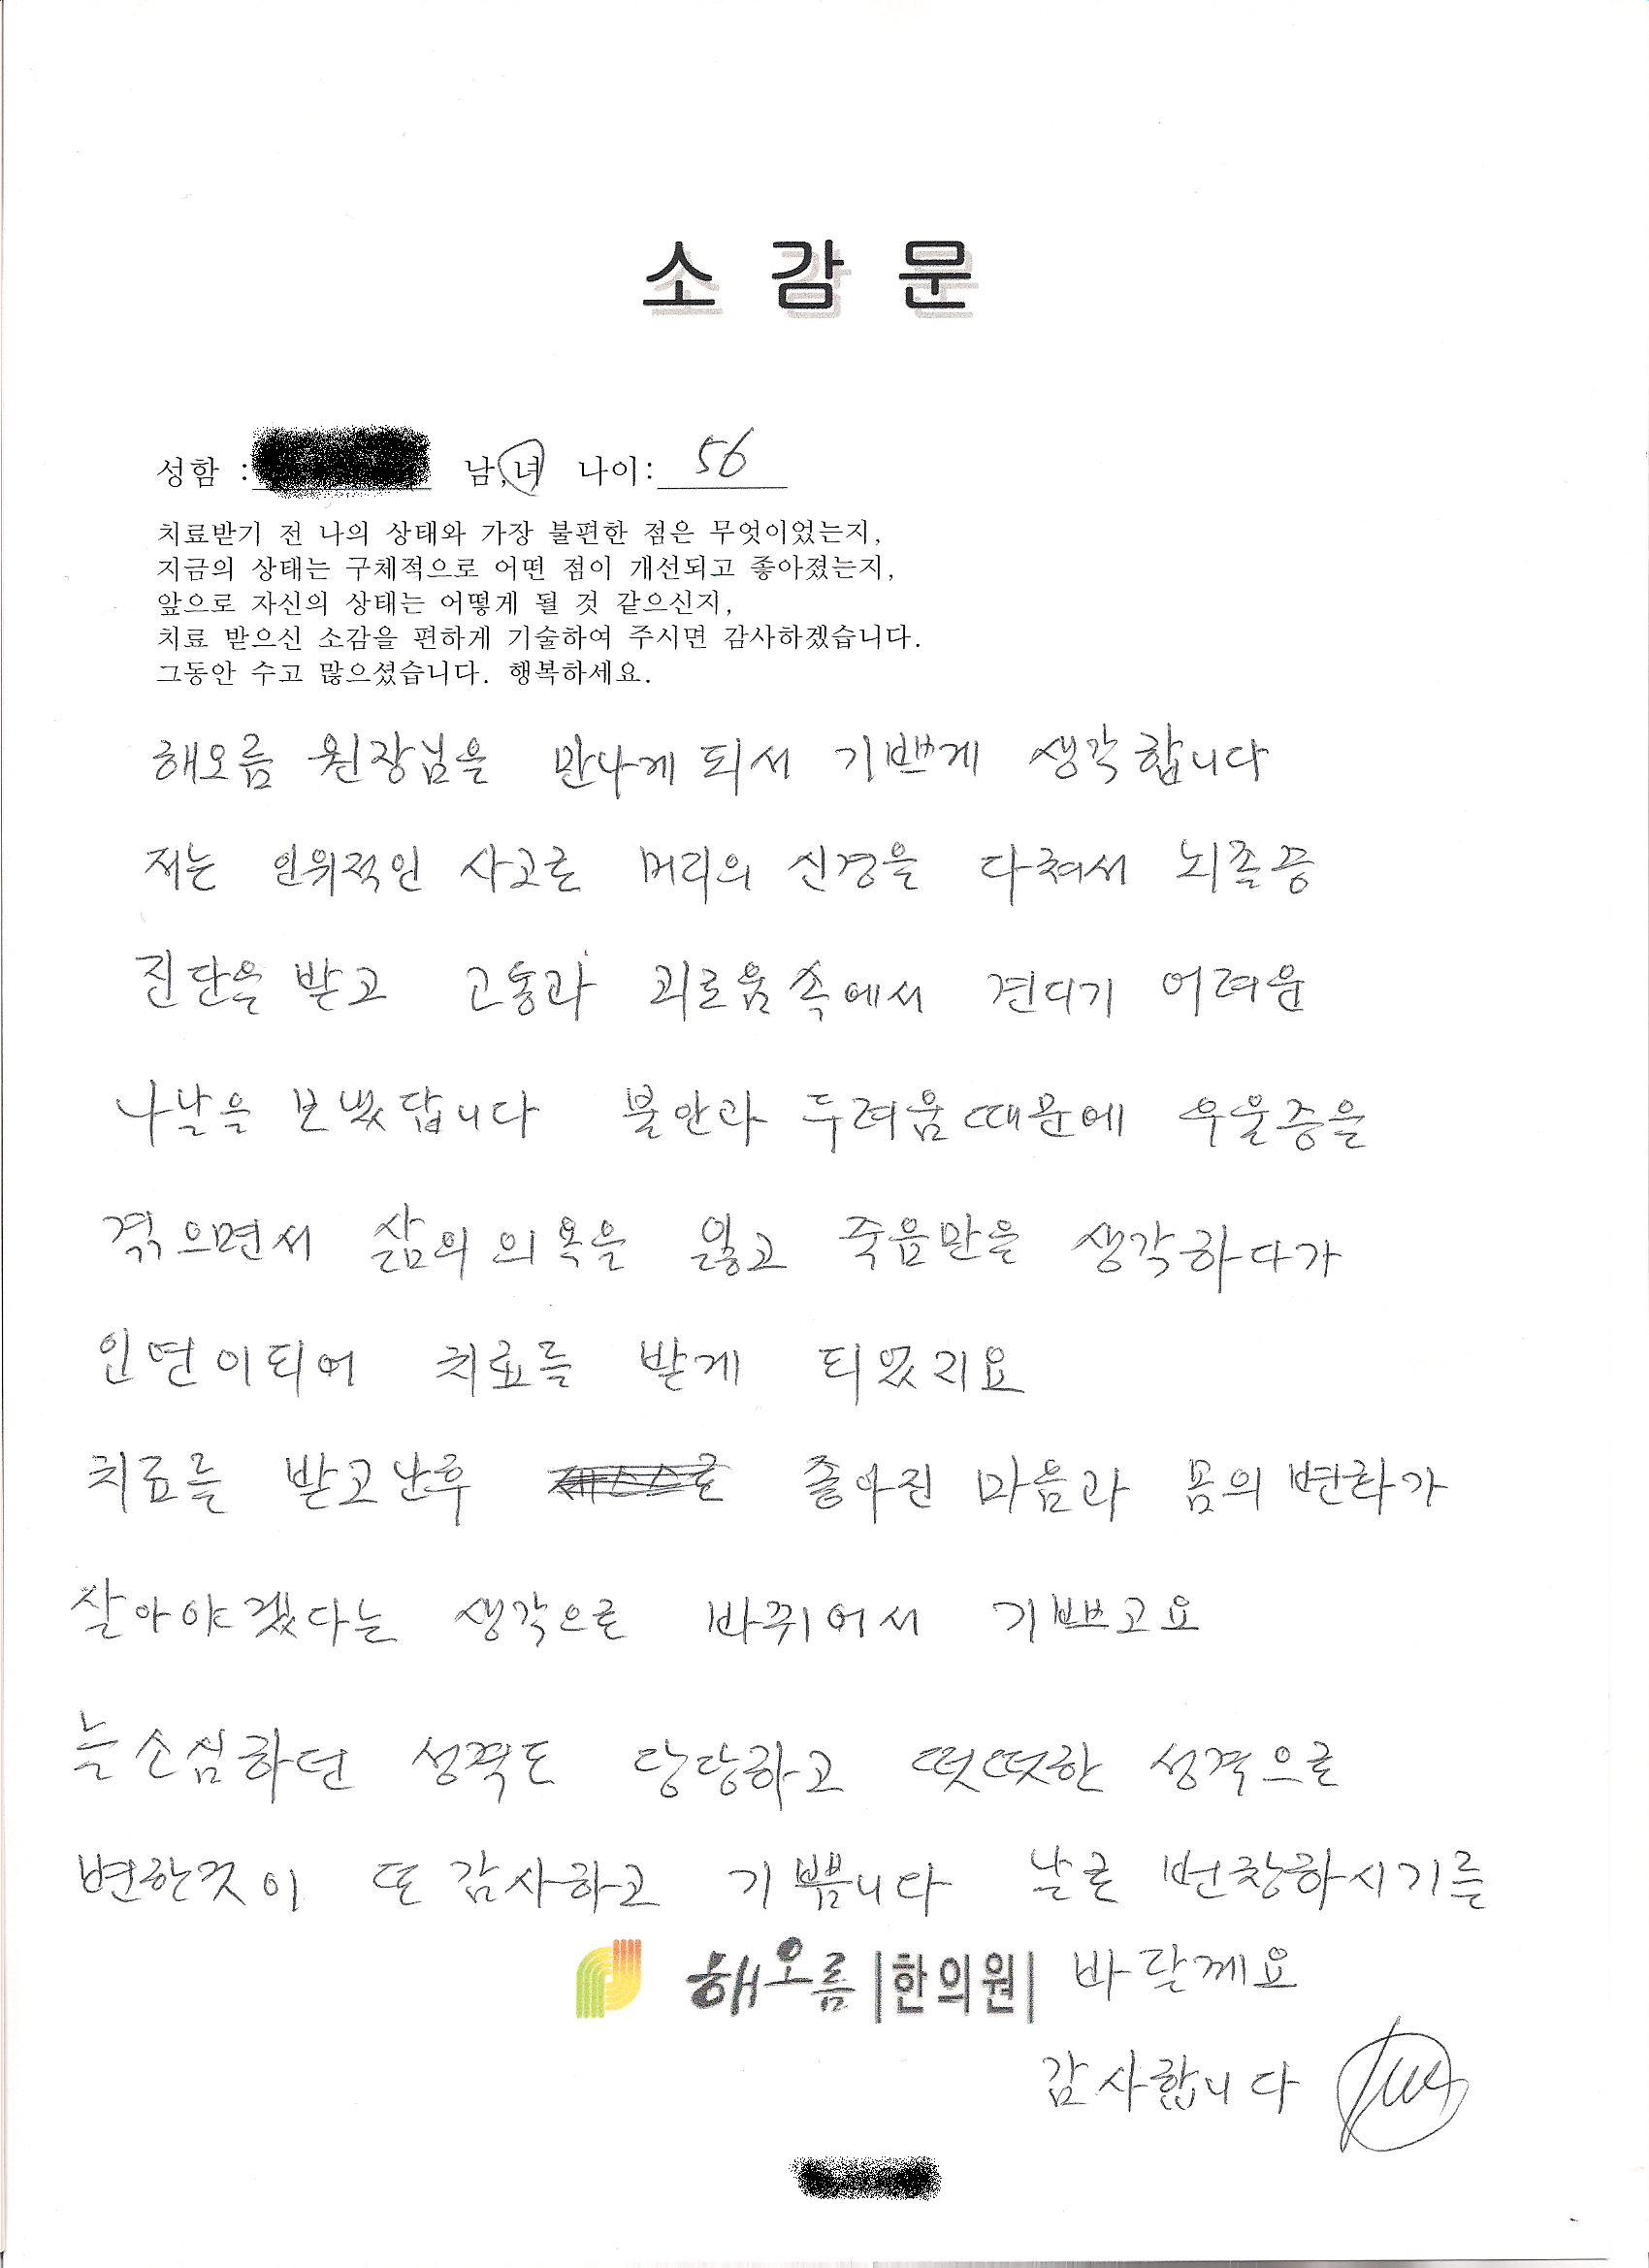 소 감 문
성함 : 남,녀 나이: 56
치료받기 전 나의 상태와 가장 불편한 점은 무엇이었는지,
지금의 상태는 구체적으로 어떤 점이 개선되고 좋아졌는지,
앞으로 자신의 상태는 어떻게 될 것 같으신지,
치료 받으신 소감을 편하게 기술하여 주시면 감사하겠습니다.
그동안 수고 많으셨습니다. 행복하세요.
해오름 원장님을 만나게 되서 기쁘게 생각합니다
저는 인위적인 사고로 머리의 신경을 다쳐서 뇌졸증
진단을 받고 고통과 괴로움속에서 견디기 어려운
나날을 보냈답니다 불안과 두려움때문에 우울증을
겪으면서 삶의 의욕을 잃고 죽음만을 생각하다가
인연이되어 치료를 받게 되었지요
치료를 받고난후 좋아진 마음과 몸의 변화가
살아야겠다는 생각으로 바뀌어서 기쁘고요
늘소심하던 성격도 당당하고 떳떳한 성격으로
변한것이 또 감사하고 기쁩니다 날로 번창하시기를
해오름 한의원 바랄께요
감사합니다